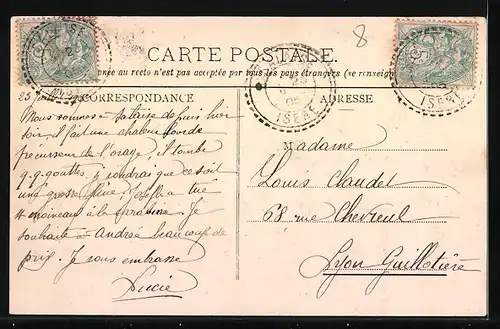 8
CARTE POSTALE
ance au recto n'est pas acceptée par tous les pays étrangers (se renseign
CORRESPONDANCE
ADRESSE
ISÈRE
ISÈRE
25 juin
Nous sommes à Salaise depuis hier
soir il fait une chaleur lourde
précurseur de l'orage, il tombe
q.q. gouttes, je voudrais que ce soit
une grosse pluie, Joseph a tué
4 moineaux à la carabine. Je
souhaite à Andrée beaucoup de
prix. Je vous embrasse
Lucie
Madame
Louis Claudel
68, rue Chevreul
Lyon Guillotière